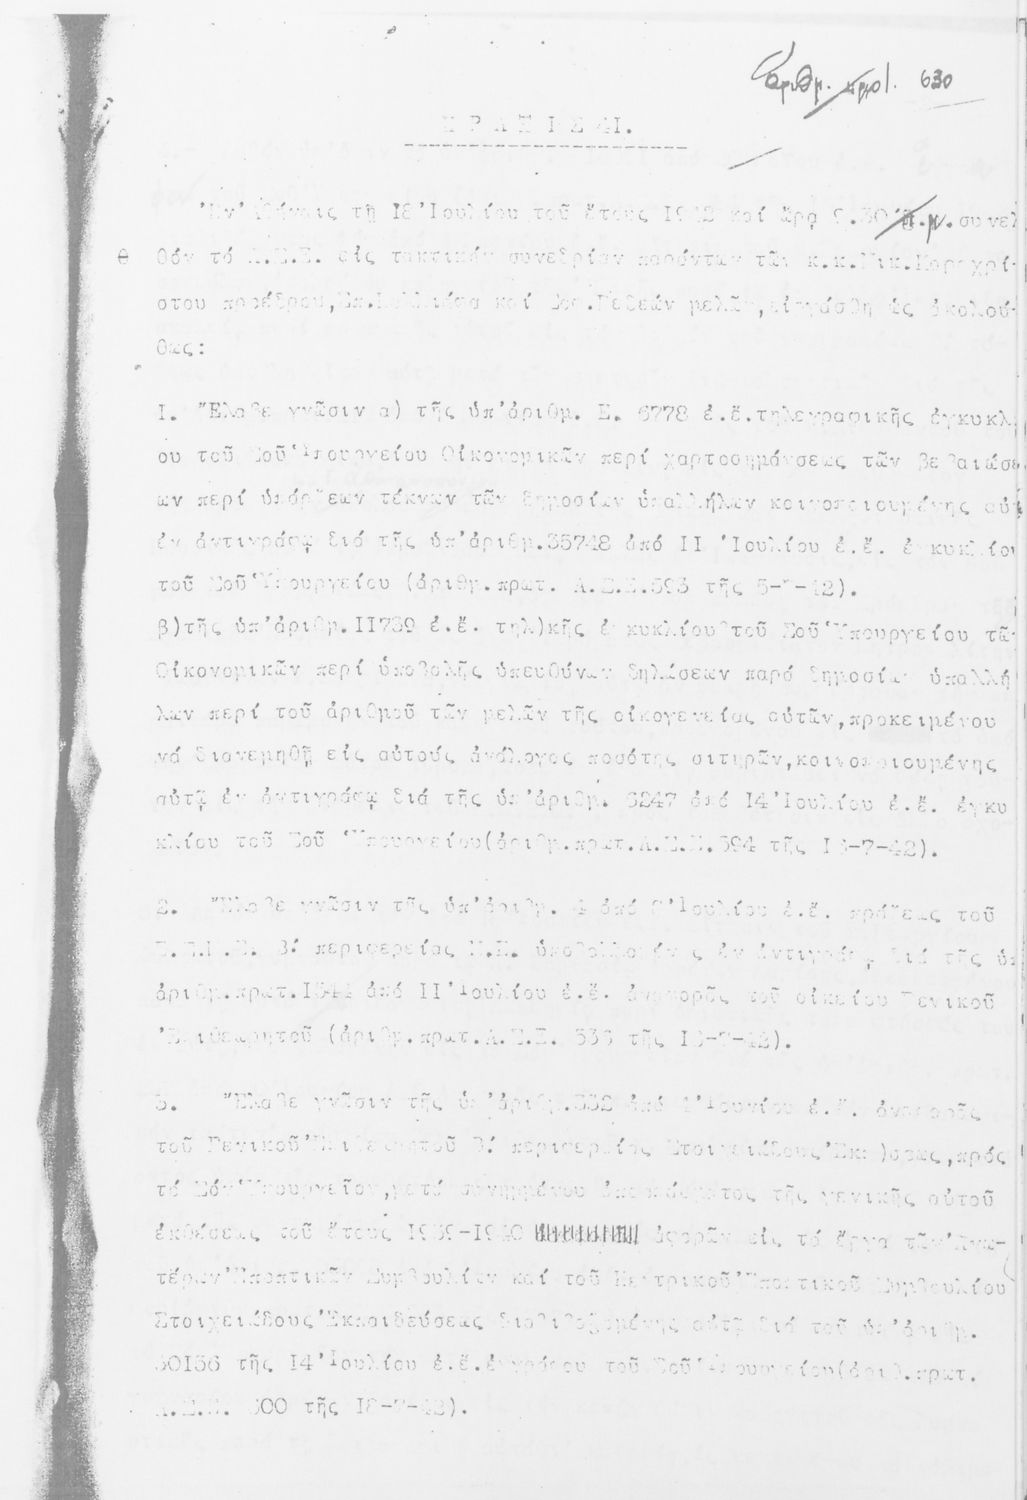 αριθμ. πρωτ. 630
ΠΡΑΞΙΣ 41.
'Εν'Αθήναις τῇ Ι8'Ιουλίου τοῦ ἔτους Ι942 καί ὥρᾳ 9.30'π.μ.συνελ
θόν τό Α.Σ.Ε. εἰς τακτικήν συνεδρίαν παρόντων τῶν κ.κ.Νικ.Καραχρί-
στου προέδρου, καί μελῶν,εἰργάσθη ὡς ἀκολού-
θως:
Ι. "Ελαβε γνῶσιν α) τῆς ὑπ'ἀριθμ. Ε. 6778 ἐ.ἔ.τηλεγραφικῆς ἐγκυκλ
ου τοῦ Σοῦ'Υπουργείου Οἰκονομικῶν περί χαρτοσημάνσεως τῶν βεβαιώσε
ων περί ὑπάρξεων τέκνων τῶν δημοσίων ὑπαλλήλων κοινοποιουμένης αὐτῷ
ἐν ἀντιγράφῳ διά τῆς ὑπ'ἀριθμ.35748 ἀπό ΙΙ 'Ιουλίου ἐ.ἔ. ἐγκυκλίου
τοῦ Σοῦ'Υπουργείου (ἀριθμ.πρωτ. Α.Σ.Ε.593 τῆς
β)τῆς ὑπ'ἀριθμ.ΙΙ739 ἐ.ἔ. τηλ)κῆς ἐγκυκλίου τοῦ Σοῦ'Υπουργείου τῶν
Οἰκονομικῶν περί ὑποβολῆς ὑπευθύνων δηλώσεων παρά δημοσίων ὑπαλλή
λων περί τοῦ ἀριθμοῦ τῶν μελῶν τῆς οἰκογενείας αὐτῶν,προκειμένου
νά διανεμηθῇ εἰς αὐτούς ἀνάλογος ποσότης σιτηρῶν,κοινοποιουμένης
αὐτῷ ἐν ἀντιγράφῳ διά τῆς ὑπ'ἀριθμ. 6247 ἀπό Ι4'Ιουλίου ἐ.ἔ. ἐγκυ
κλίου τοῦ Σοῦ 'Υπουργείου(ἀριθμ.πρωτ.Α.Σ.Ε.594 τῆς
2. "Ελαβε γνῶσιν τῆς ὑπ'ἀριθμ. 4 ἀπό 'Ιουλίου ἐ.ἔ. πράξεως τοῦ
Β! περιφερείας ὑποβαλλομένης ἐν ἀντιγράφῳ διά τῆς ὑπ
ἀριθμ.πρωτ.Ι344 ἀπό ΙΙ'Ιουλίου ἐ.ἔ. ἀναφορᾶς τοῦ οἰκείου Γενικοῦ
'Επιθεωρητοῦ (ἀριθμ.πρωτ.Α.Σ.Ε. τῆς
3. "Ελαβε γνῶσιν τῆς ὑπ'ἀριθμ.332 ἀπό 'Ιουνίου ἐ.ἔ. ἀναφορᾶς
τοῦ Γενικοῦ'Επιθεωρητοῦ Β! περιφερείας Στοιχειώδους'Εκπ)σεως,πρός
τό Σόν'Υπουργεῖον,μετά συνημμένου ἀποσπάσματος τῆς γενικῆς αὐτοῦ
ἐκθέσεως τοῦ ἔτους Ι939-Ι940 ἀφορῶν εἰς τό ἔργα τῶν'Ανω-
τέρων'Εποπτικῶν Συμβουλίων καί τοῦ Κεντρικοῦ'Εποπτικοῦ Συμβουλίου
Στοιχειώδους'Εκπαιδεύσεως διαβιβαζομένης αὐτῷ διά τοῦ ὑπ'ἀριθμ.
50136 τῆς Ι4'Ιουλίου ἐ.ἔ.ἐγγράφου τοῦ Σοῦ'Υπουργείου(ἀριθ.πρωτ.
Α.Σ.Ε. 600 τῆς Ι8-7-42).